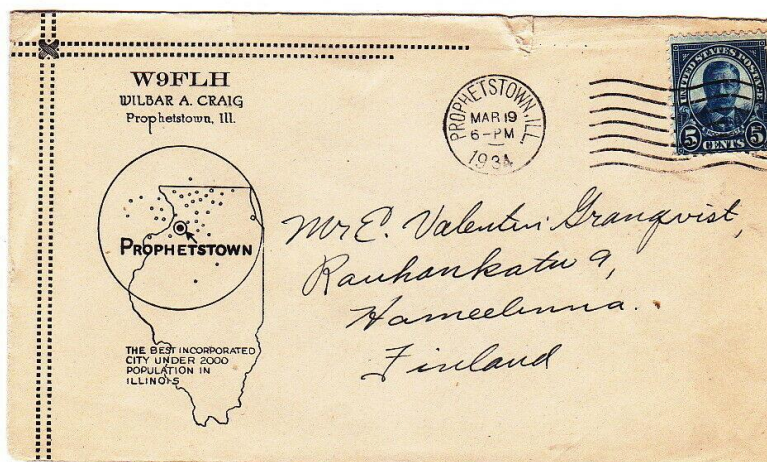 W9FLH
WILBAR A. CRAIG
Prophetstown, Ill.
PROPHETSTOWN
THE BEST INCORPORATED
CITY UNDER 2000
POPULATION IN
ILLINOIS
PROPHETSTOWN, ILL.
MAR 19
6-PM
1934
UNITED STATES POSTAGE
5 CENTS 5
Mr E. Valentin Granqvist,
Rauhankatu 9,
Hameelinna.
Finland